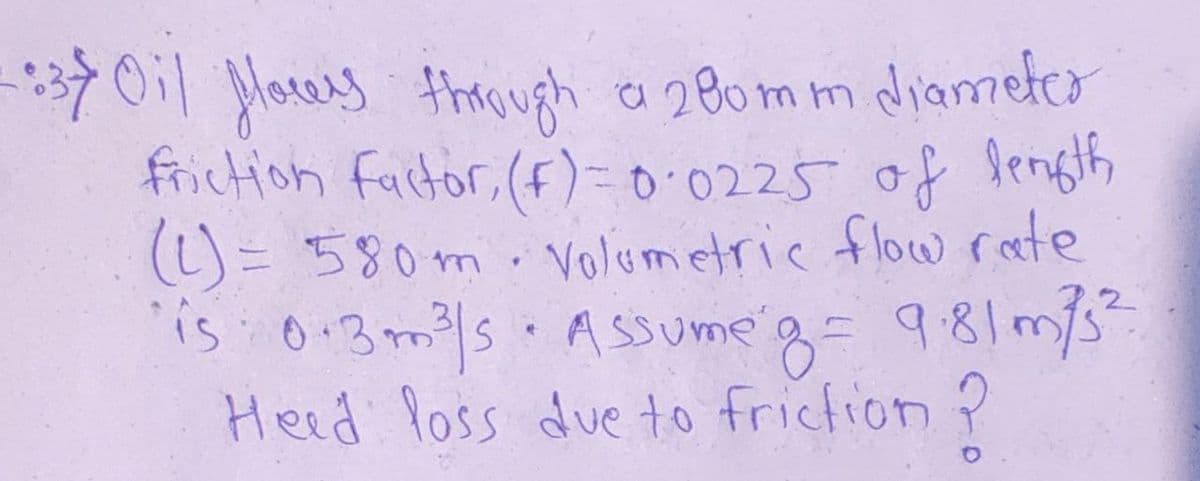 :37 Oil flows through a 280mm diameter
friction factor, (f)=0.0225 of length
(L)= 580m. Volumetric flow rate
is 0.3m³/s. Assume g= 9.81m/s²
Head loss due to friction?